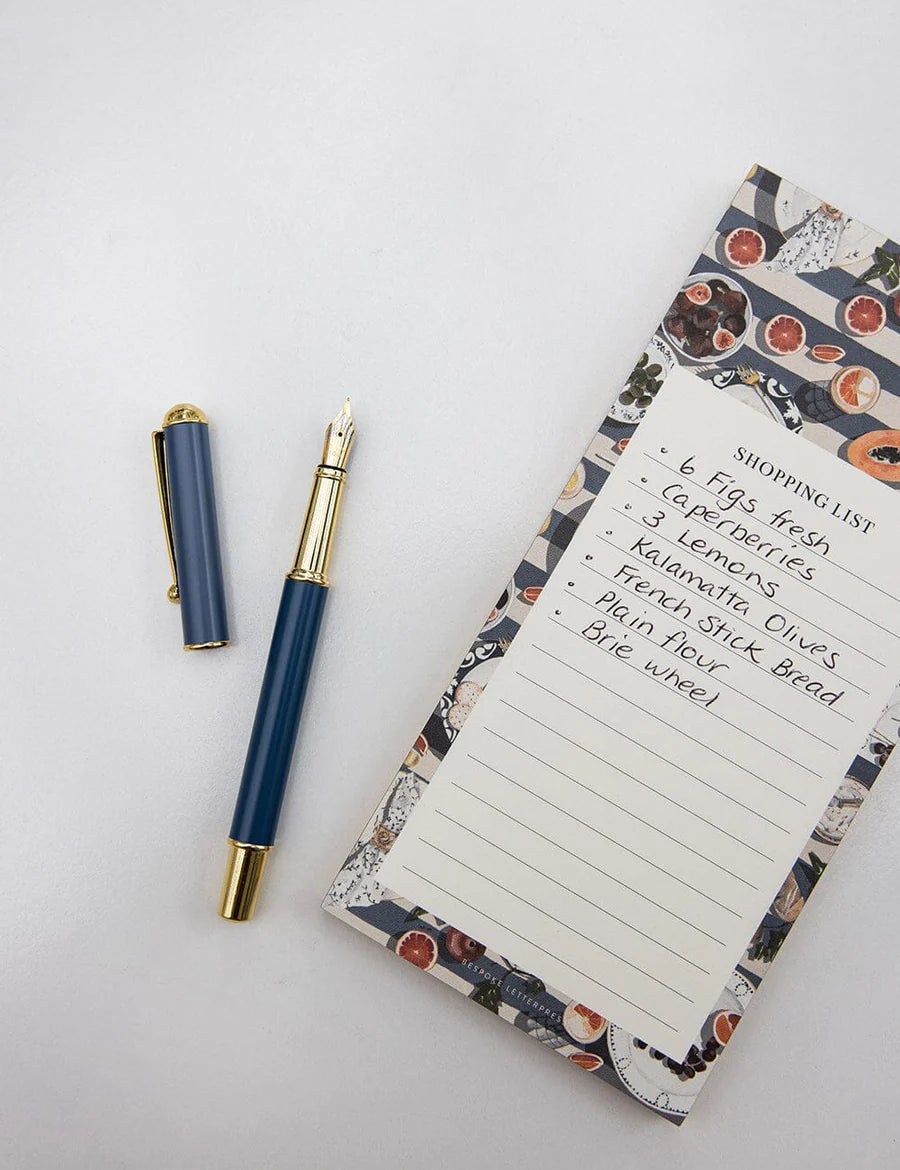 SHOPPING LIST
6 Figs fresh
Caperberries
3 Lemons
Kalamatta Olives
French Stick Bread
Plain flour
Brie wheel
BESPOKE LETTERPRESS